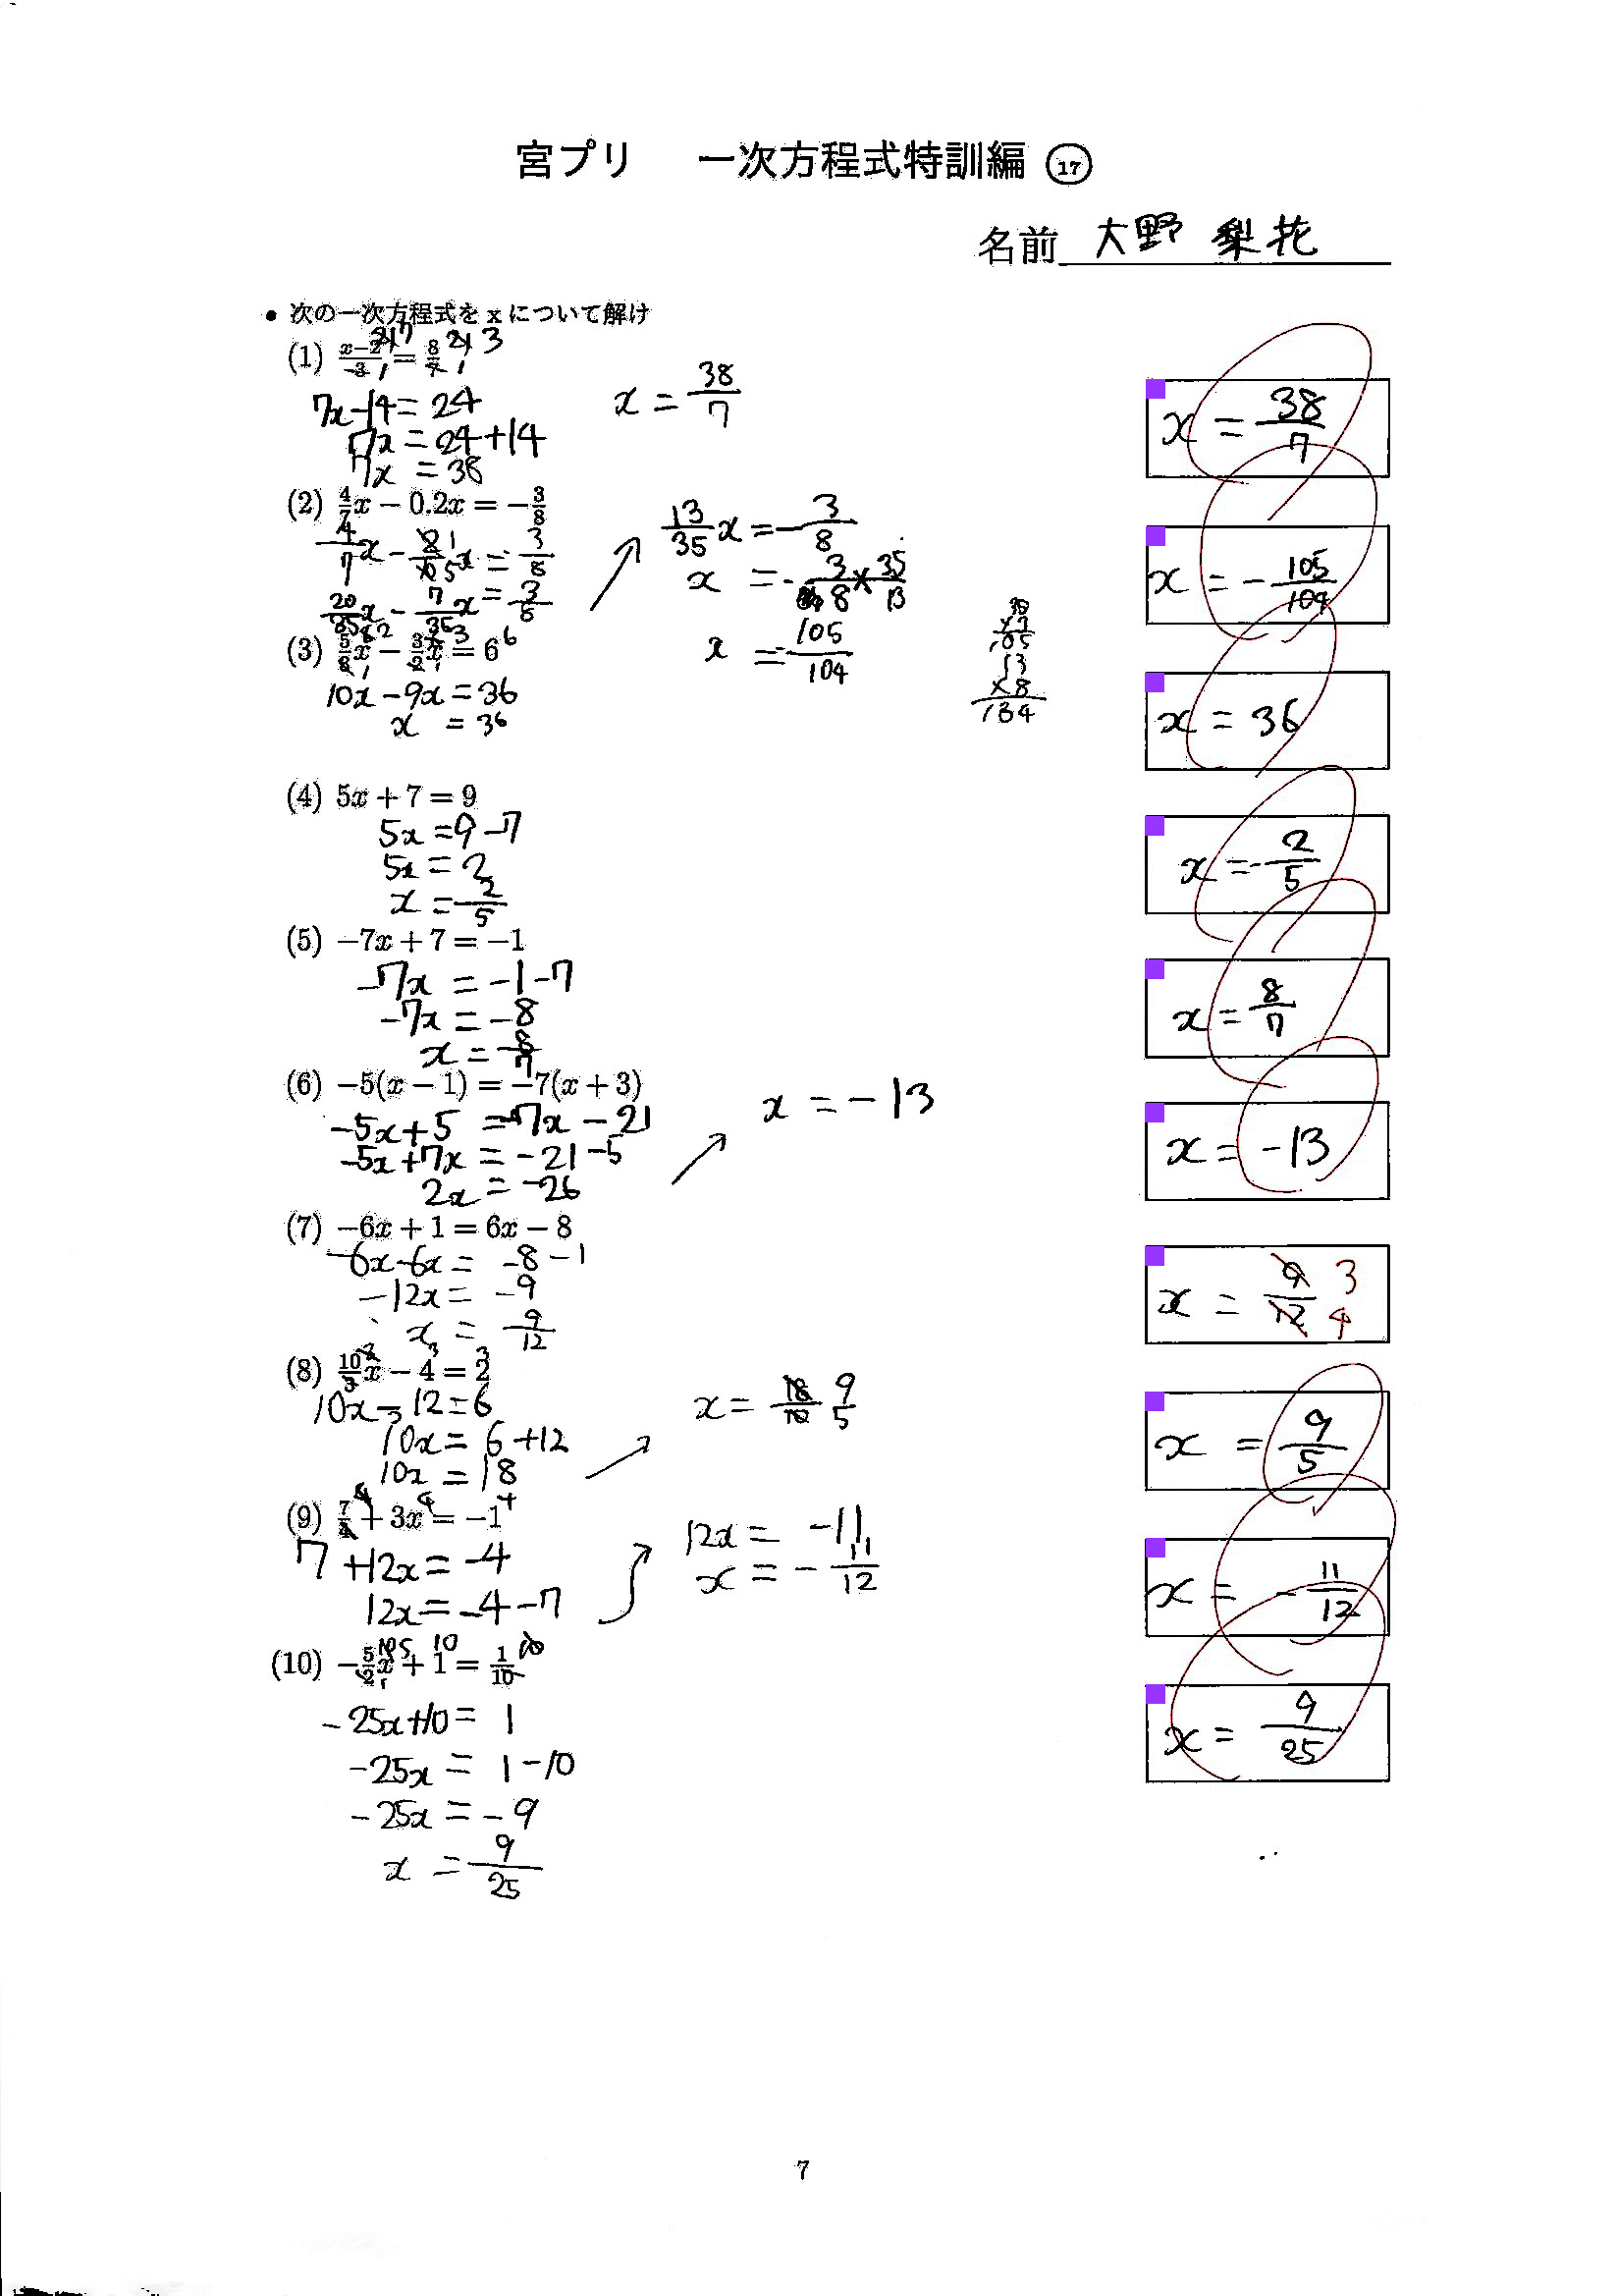 宮プリ 一次方程式特訓編 ⑰
名前 大野 梨花
• 次の一次方程式を x について解け
(1) \frac{x-2}{3} = \frac{8}{7}
7x-14=24
7x=24+14
7x=38
x=\frac{38}{7}
x=\frac{38}{7}
(2) \frac{4}{7}x - 0.2x = -\frac{3}{8}
\frac{4}{7}x-\frac{2}{10}x=-\frac{3}{8}
\frac{20}{35}x-\frac{7}{35}x=\frac{3}{8}
\frac{13}{35}x=-\frac{3}{8}
x=-\frac{3}{8}×\frac{35}{13}
x=-\frac{105}{104}
x=-\frac{105}{104}
(3) \frac{5}{8}x - \frac{3}{2}x = 6
10x-9x=36
x=36
x=36
(4) 5x + 7 = 9
5x=9-7
5x=2
x=\frac{2}{5}
x=-\frac{2}{5}
(5) -7x + 7 = -1
-7x=-1-7
-7x=-8
x=\frac{8}{7}
x=\frac{8}{7}
(6) -5(x - 1) = -7(x + 3)
-5x+5=-7x-21
-5x+7x=-21-5
2x=-26
x=-13
x=-13
(7) -6x + 1 = 6x - 8
-6x-6x=-8-1
-12x=-9
x=\frac{9}{12}
x=\frac{9}{12} \frac{3}{4}
(8) \frac{10}{3}x - 4 = 2
10x-12=6
10x=6+12
10x=18
x=\frac{18}{10} \frac{9}{5}
x=\frac{9}{5}
(9) \frac{7}{4} + 3x = -1
7+12x=-4
12x=-4-7
12x=-11
x=-\frac{11}{12}
x=-\frac{11}{12}
(10) -\frac{5}{2}x + 1 = \frac{1}{10}
-25x+10=1
-25x=1-10
-25x=-9
x=\frac{9}{25}
x=\frac{9}{25}
7